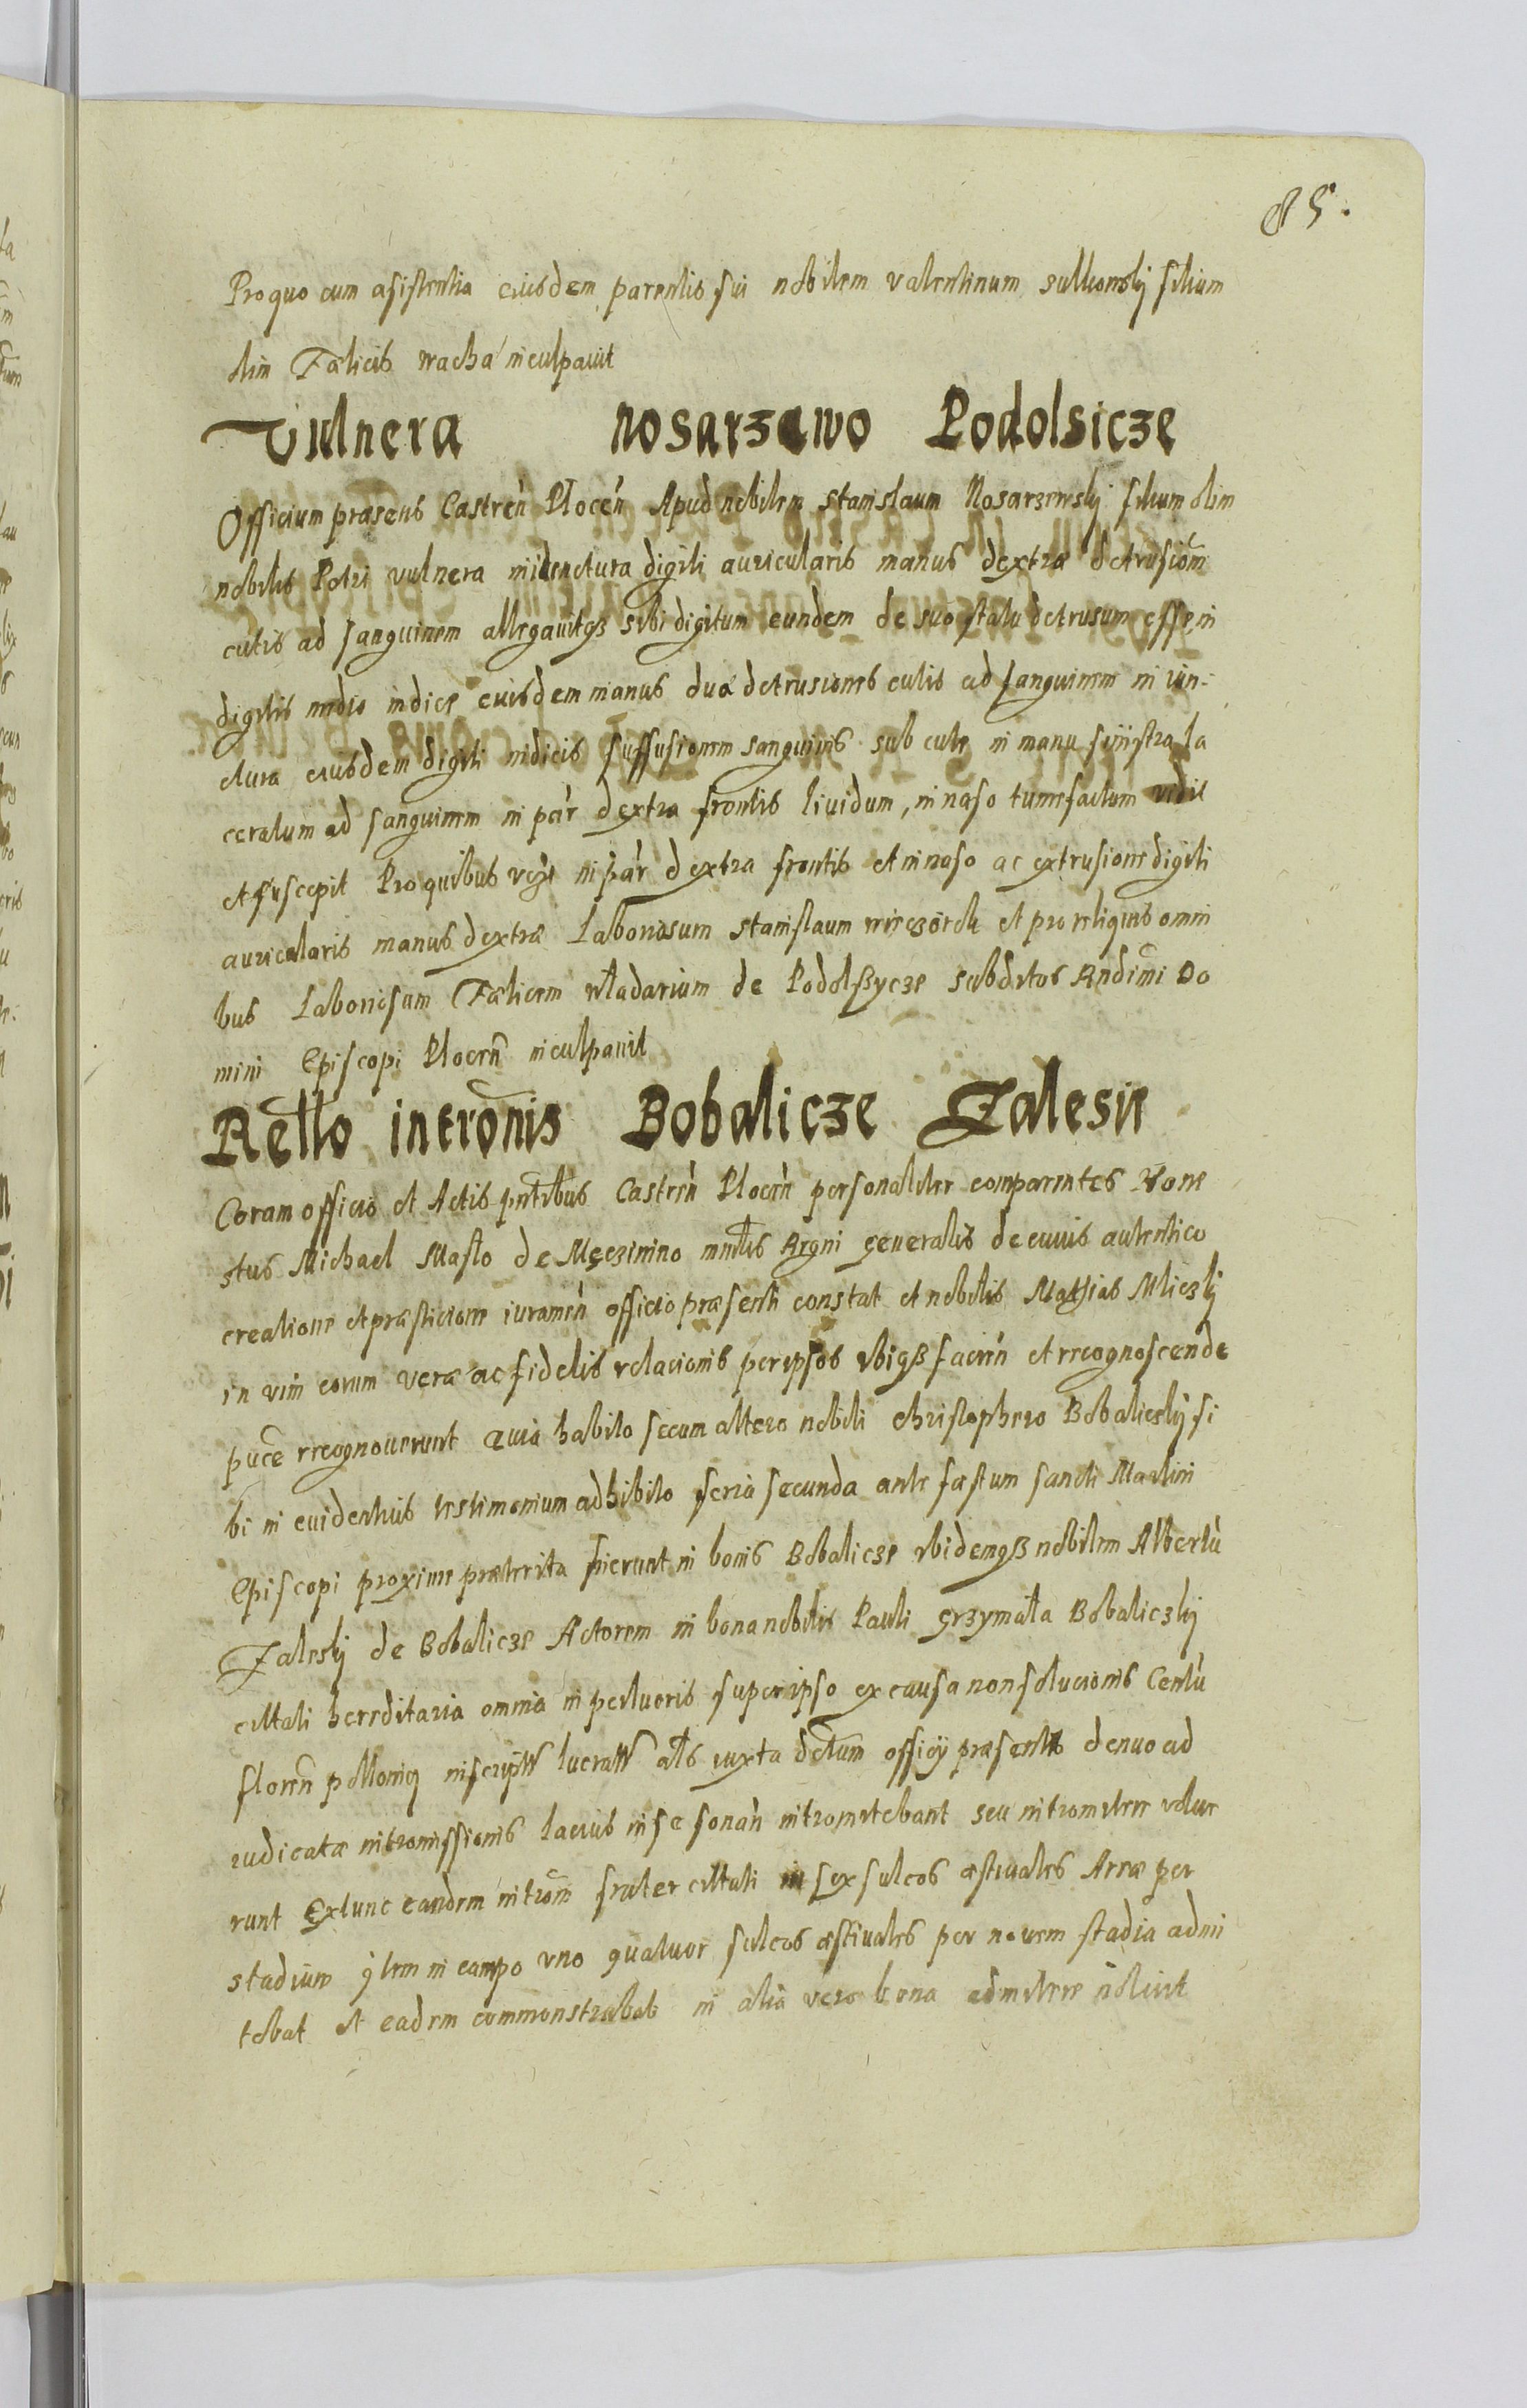 85.
Pro quo cum asistentia eiusdem parentis sui nobilem valentinum sulkowskÿ filium
olim Fælicis wacha inculpauit
Vulnera nosarzewo Podolsicze
Officium præsens Castreń Płoceń Apud nobilem stanislaum Nosarzewskÿ filium olim
nobilis Petri vulnera in iunctura digiti auricularis manus dextræ detrusiom̃
cutis ad sanguinem allegauitqȝ sibi digitum eundem de suo statu detrusum esse in
digitis medio indice eiusdem manus dua detrusiones cutis ad sanguinem in iun-
ctura eiusdem digiti indicis suffusionem sanguinis sub cute in manu sinistra la
ceratum ad sanguinem in par dextra frontis liuidum, in naso tumefactum vidit
et suscepit Pro quibus in par dextra frontis et in naso ac extrusione digiti
auricularis manus dextræ Laboriosum stanislaum et pro reliquis omni
bus Laboriosum Fælicem włodarium de Podolßycze subditos Rndimi Do
mini Episcopi Płoceñ inculpauit
Retło intromis Bobalicze Zalesie
Coram officio et Actis pntibus Castreń Płoceń personaliter comparentes Hone
stus Michael Masło de Męczinino mnłis Regni generalis de cuius autentico
creatione et præsticione iurameń officio præsenti constat et nobilis Mathias Mliczkÿ
in vim eorum veræ ac fidelis relacionis per ipsos vbiqȝ facień et recognoscende
puce recognouerunt quia habito secum altero nobili christophero Bobaliczkÿ si
bi in euidentius testimonium adhibito feria secunda ante fæstum sancti Martini
Episcopi proxime præterita fuerunt in bonis Bobalicze ibidemqȝ nobilem Albertù
Zaleskÿ de Bobalicze Actorem in bona nobilis Pauli grzymała Bobaliczkÿ
citati hereditaria omnia in super ipso ex causa non solucionis Centù
floreñ pollonicj lucra ałs iuxta dctum officÿ præsentis denuo ad
iudicatæ intromissionis lacius in se sonań intromitebant seu intromitere volue
runt Extunc eandem introm̃ frater citati in sex sulcos æstiuales Arræ per
stadium item in campo vno quatuor sulcos æstiuales per novem stadia admi
tebat et eadem commonstrabat in alia vero bona admitere noluit